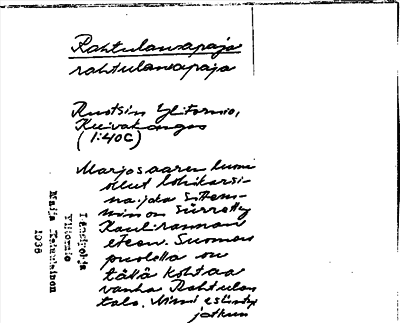 Rahtulanapaja
rahtulanapaja
Ruotsin Ylitornio,
Kuivakangas
(1:40C)
Marjosaaren luona
ollut lohikarsi-
na, joka sittem-
min on siirretty
Kaulirannan
eteen. Suomen
puolella on
tällä kohtaa
vanha Rahtulan
talo. Nimi esiintyy
jatkuu
Länsipohja
Ylitornio
Maija Juvelainen
1936